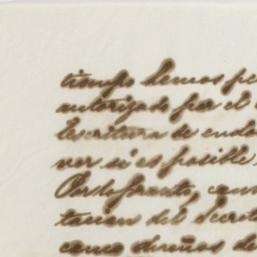 tiempo hemos pe
autorizado por el
Escritura de
ver si es posible
Por lo tanto, con
tacion del Secret
como dueños de